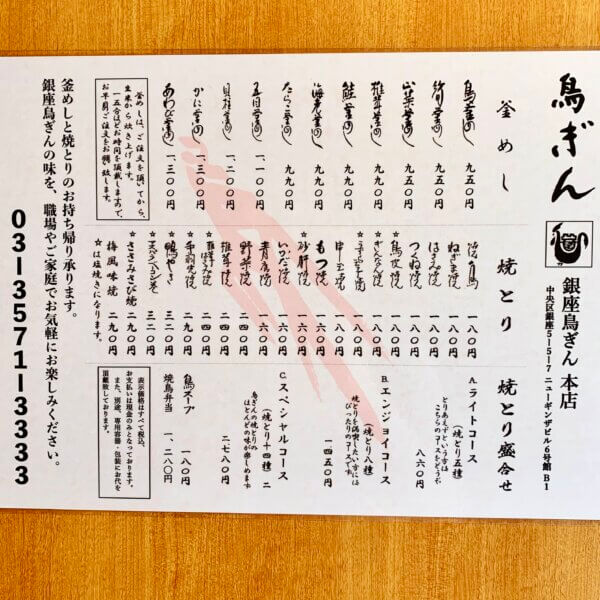 鳥ぎん
銀座鳥ぎん 本店
中央区銀座5-5-7 ニューギンザビル6号館B1
釜めし
鳥釜めし 九五〇円
釜めし 九五〇円
山菜釜めし 九五〇円
椎茸釜めし 九九〇円
鮭釜めし 九九〇円
海老釜めし 九九〇円
たらこ釜めし 九九〇円
五目釜めし 一、一〇〇円
貝柱釜めし 一、二〇〇円
かに釜めし 一、三〇〇円
あわび釜めし 一、三〇〇円
釜めしは、ご注文を頂いてから、
生米から炊き上げます。
一五分ほどお時間を頂戴しますので、
お早目ご注文をお願い致します。
焼とり
一八〇円
ねぎま焼 一八〇円
はさみ焼 一八〇円
つくね焼 一八〇円
☆鳥皮焼 一八〇円
ぎんなん焼 一八〇円
一八〇円
一八〇円
もつ焼 一六〇円
☆砂肝焼 一六〇円
いかだ焼 一六〇円
青唐焼 一六〇円
野菜焼 二四〇円
椎茸焼 二四〇円
はさみ焼 二四〇円
☆手羽先焼 二九〇円
☆鴨やき 三二〇円
三二〇円
☆ささみさび焼 二九〇円
☆梅風味焼 二九〇円
☆は塩焼きになります。
焼とり盛合せ
A.ライトコース
(焼とり五種)
とりあえずという方は
こちらのコースをどうぞ
八六〇円
B.エンジョイコース
(焼とり八種)
焼とりを満喫したい方には
ぴったりのコースです。
一四五〇円
C.スペシャルコース
(焼とり十四種)
鳥ぎんの焼とりの
ほとんどの味が楽しめます
二七八〇円
鳥スープ 一八〇円
焼鳥弁当 一、二八〇円
表示価格はすべて税込、
お支払いは現金のみとなっております。
また、別途、専用容器・包装にお代を
頂戴致しております。
釜めしと焼とりのお持ち帰り承ります。
銀座鳥ぎんの味を、職場やご家庭でお気軽にお楽しみください。
03-3571-3333